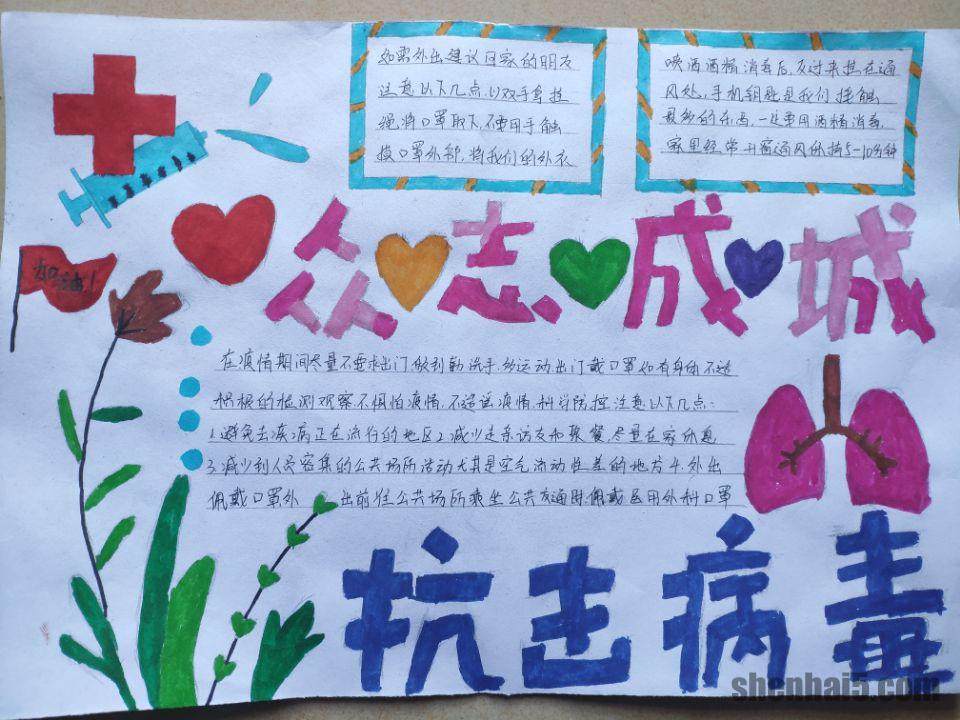 如需外出建议回家的朋友
注意以下几点:1)双手拿挂
绳将口罩取下,不要用手触
摸口罩外部,将我们的外衣
喷洒酒精消毒后,反过来挂在通
风处,手机钥匙是我们接触
最多的东西,一定要用酒精消毒,
家里经常开窗通风休持5-10分钟
加油!
众志成城
在疫情期间尽量不要求出门,做到勤洗手,多运动出门戴口罩如有身体不适
积极的检测观察不惧怕疫情,不造谣疫情,科学防控,注意以下几点:
1.避免去疾病正在流行的地区2.减少走亲访友和聚餐,尽量在家休息
3.减少到人员密集的公共场所活动尤其是空气流动性差的地方4.外出
佩戴口罩外 出前往公共场所乘坐公共交通时,佩戴医用外科口罩
抗击病毒
shenhai5.com